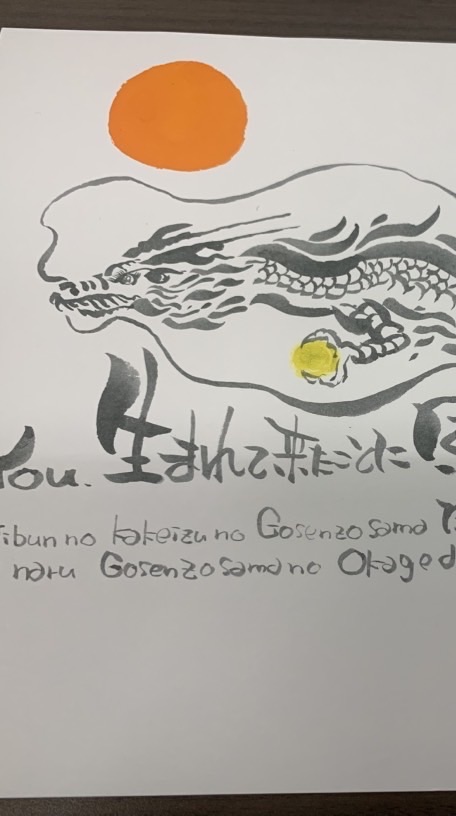 You. 生まれて来たことに
ibun no kakeizu no Gosenzo sama
naru Gosenzo sama no Okage d